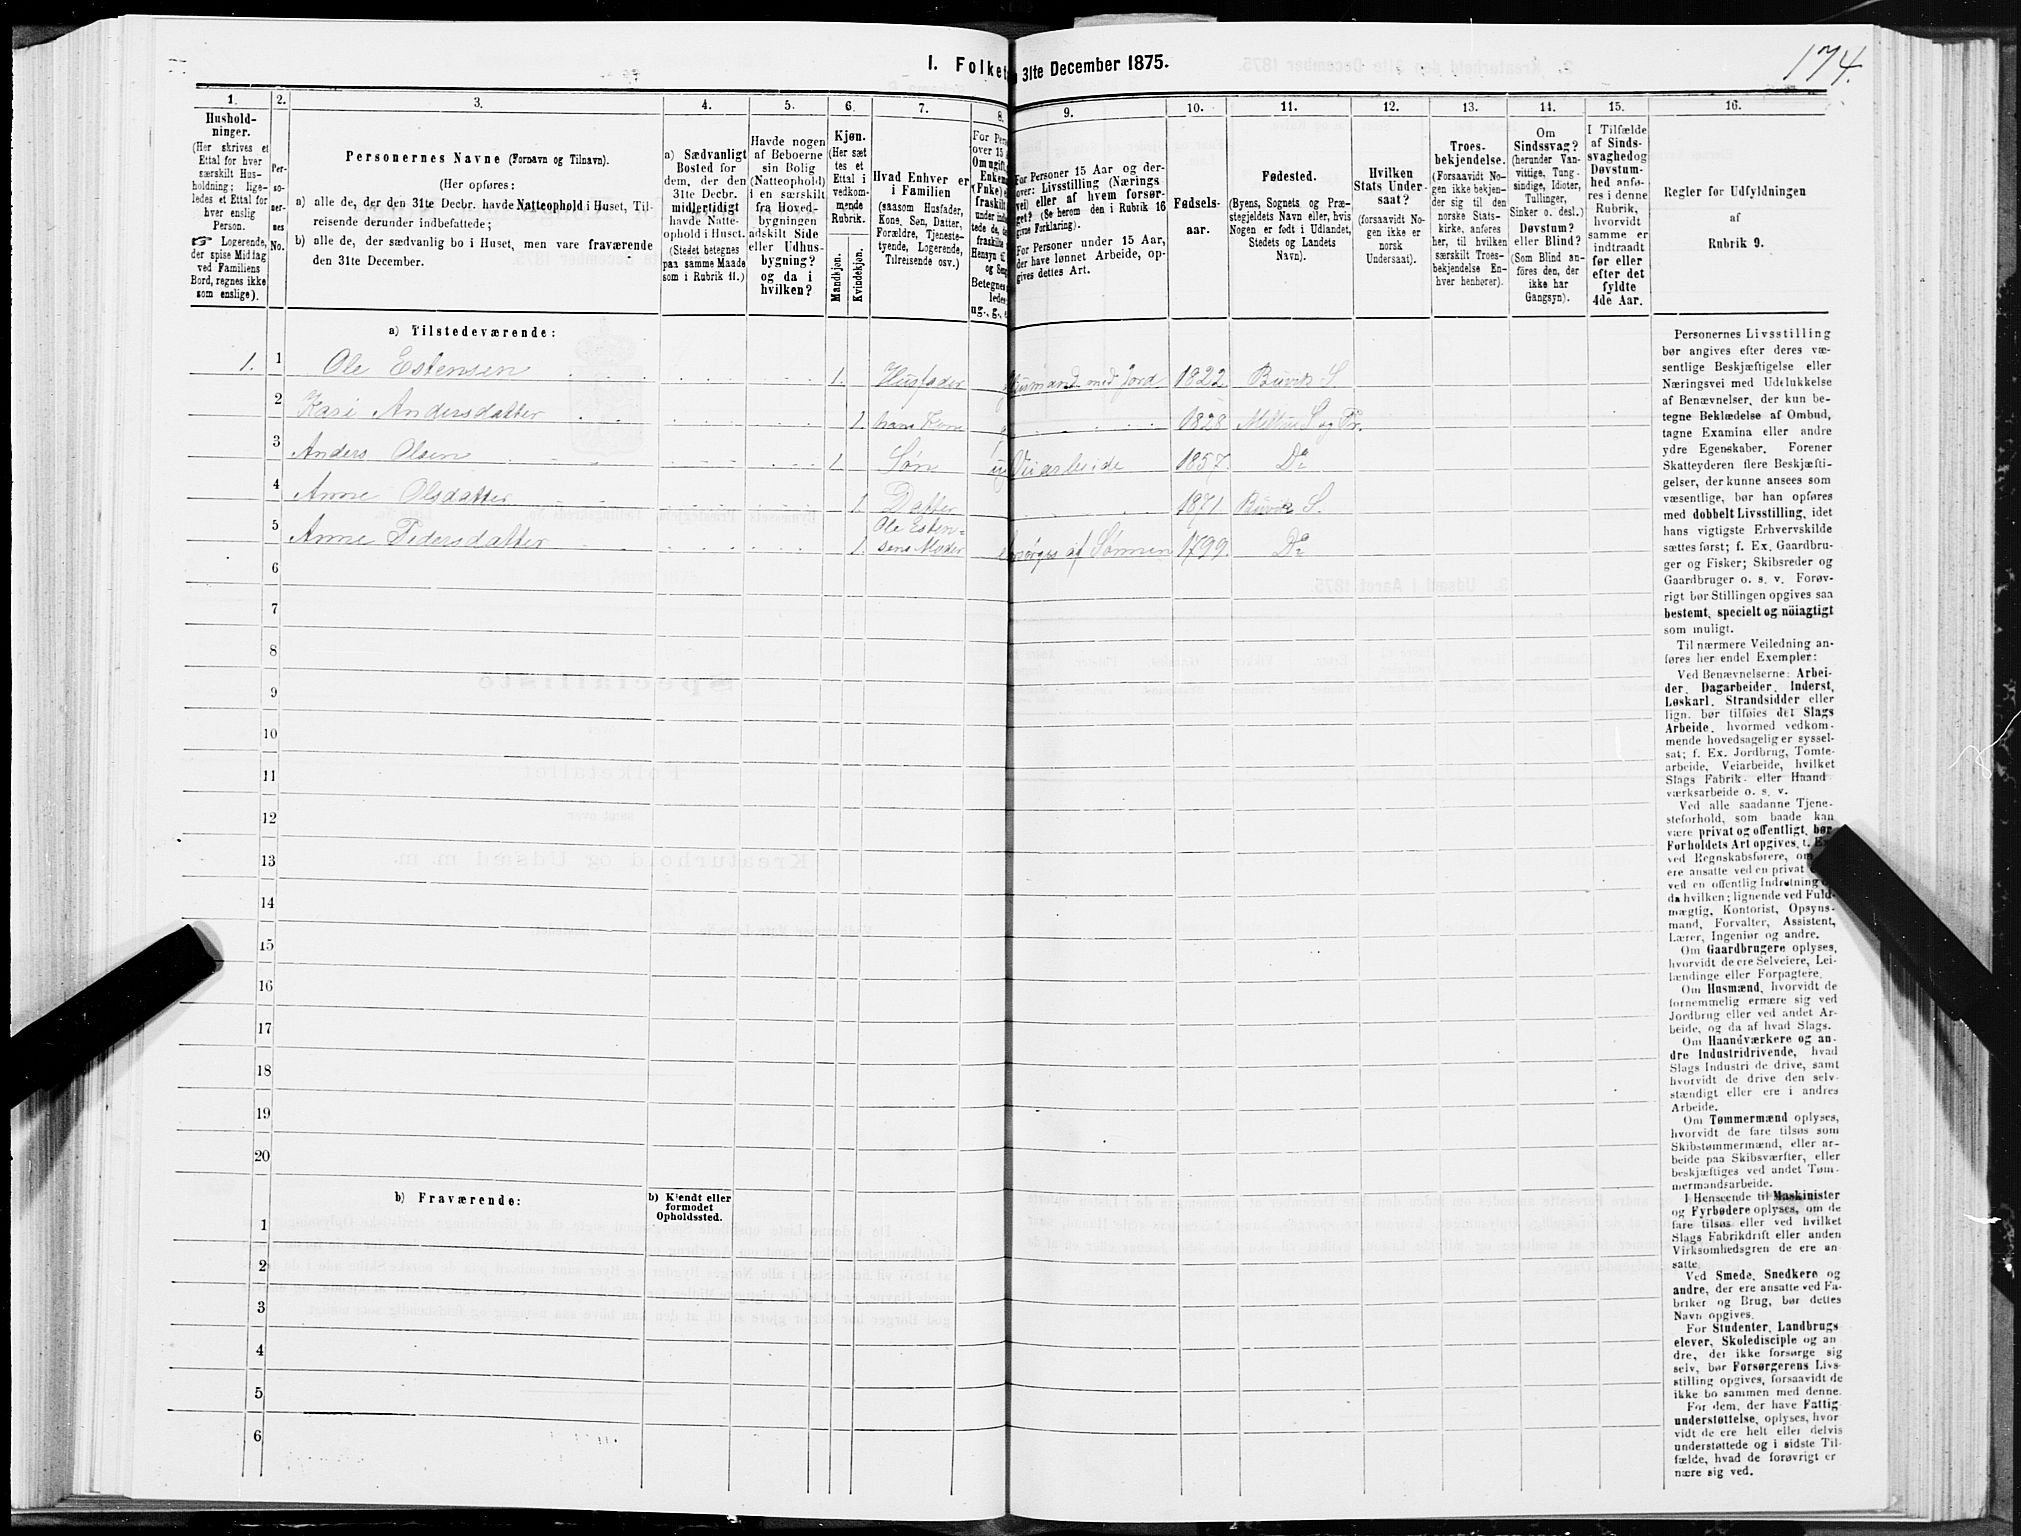 174.
I. Folket
31te December 1875.
1. 2. 3. 4. 5. 6. 7. 8. 9. 10. 11. 12. 13. 14. 15. 16.
Hushold-
ninger.
(Her skrives et
Ettal for hver
særskilt Hus-
holdning; lige-
ledes et Ettal for
hver enslig
Person.
☞ Logerende,
der spise Middag
ved Familiens
Bord, regnes ikke
som enslige).
Per-
so-
ner-
nes
No.
Personernes Navne (Fornavn og Tilnavn).
(Her opføres:
a) alle de, der den 31te Decbr. havde Natteophold i Huset, Til-
reisende derunder indbefattede;
b) alle de, der sædvanlig bo i Huset, men vare fraværende
den 31te December.
a) Sædvanligt
Bosted for
dem, der den
31te Decbr.
midlertidigt
havde Natte-
ophold i Huset.
(Stedet betegnes
paa samme Maade
som i Rubrik 11.)
Havde nogen
af Beboerne
sin Bolig
(Natteophold)
i en særskilt
fra Hoved-
bygningen
adskilt Side
eller Udhus-
bygning?
og da i
hvilken?
Kjøn.
(Her sæt
tes et
Ettal i
vedkom-
mende
Rubrik.
Mandkjøn.
Kvindekjøn.
Hvad Enhver er
i Familien
(saasom Husfader,
Kone, Søn, Datter,
Forældre, Tjeneste-
tyende, Logerende,
Tilreisende osv.)
For Pers
over 15 A
Om ugift,
Enkem
(Enke) e
fraskilt
under indt
tede de,
fraskilte
Hensyn ti
og Seng
Betegnes
ledes
ug., g., e
For Personer 15 Aar og der-
over: Livsstilling (Nærings
vei) eller af hvem forsør-
get? (Se herom den i Rubrik 16
givne Forklaring).
For Personer under 15 Aar,
der have lønnet Arbeide, op-
gives dettes Art.
Fødsels-
aar.
Fødested.
(Byens, Sognets og Præ-
stegjeldets Navn eller, hvis
Nogen er født i Udlandet,
Stedets og Landets
Navn).
Hvilken
Stats Under-
saat?
(forsaavidt No-
gen ikke er
norsk
Undersaat).
Troes-
bekjendelse.
(Forsaavidt No-
gen ikke bekjen-
der sig til den
norske Stats-
kirke, anføres
her, til hvilken
særskilt Troes-
bekjendelse En-
hver henhører).
Om
Sindssvag?
(herunder Van-
vittige, Tung-
sindige, Idioter,
Tullinger,
Sinker o. desl.)
Døvstum?
eller Blind?
(Som Blind an-
føres den, der
ikke har
Gangsyn).
I Tilfælde
af Sinds-
svaghed og
Døvstum-
hed anfø-
res i denne
Rubrik,
hvorvidt
samme er
indtraadt
før eller
efter det
fyldte
4de Aar.
Regler før Udfyldningen
af
Rubrik 9.
a) Tilstedeværende:
1. 1 Ole Estensen 1. Husfader Husmand med Jord 1822 Buvik S.
2 Kari Andersdatter 1. hans Kone g 1828 Melhus S og Pr.
3 Anders Olsen 1. Søn ug Veiarbeide 1857. Do
4 Anne Olsdatter 1. Datter 1871 Buvik S.
5 Anne Pedersdatter 1. Ole Esten-
sens Moder forsørges af Sønnen 1799. Do
6
7
8
9
10
11
12
13
14
15
16
17
18
19
20
b) Fraværende:
b) Kjendt eller
formodet
Opholdssted.
1
2
3
4
5
6
Personernes Livsstilling
bør angives efter deres væ-
sentlige Beskjæftigelse eller
Næringsvei med Udelukkelse
af Benævnelser, der kun be-
tegne Beklædelse af Ombud,
tagne Examina eller andre
ydre Egenskaber. Forener
Skatteyderen flere Beskjæfti-
gelser, der kunne ansees som
væsentlige, bør han opføres
med dobbelt Livsstilling, idet
hans vigtigste Erhvervskilde
sættes først; f. Ex. Gaardbru-
ger og Fisker; Skibsreder og
Gaardbruger o. s. v. Forøv-
rigt bør Stillingen opgives saa
bestemt, specielt og nöiagtigt
som muligt.
Til nærmere Veiledning an-
føres her endel Exempler:
Ved Benævnelserne: Arbei-
der, Dagarbeider, Inderst,
Løskarl, Strandsidder eller
lign. bør tilføies det Slags
Arbeide, hvormed vedkom-
mende hovedsagelig er syssel-
sat; f. Ex. Jordbrug, Tomte-
arbeide, Veiarbeide, hvilket
Slags Fabrik- eller Haand
værksarbeide o. s. v.
Ved alle saadanne Tjene-
steforhold, som baade kan
være privat og offentligt, bør
Forholdets Art opgives, t. Ex
ved Regnskabsførere, om
ere ansatte ved en privat
ved en offentlig Indretning
da hvilken; lignende ved Fuld-
mægtig, Kontorist, Opsyns-
mand, Forvalter, Assistent,
Lærer, Ingeniør og andre.
Om Gaardbrugere oplyses,
hvorvidt de ere Selveiere, Lei-
lændinge eller Forpagtere.
Om Husmænd, hvorvidt de
fornemmelig ernære sig ved
Jordbrug eller ved andet Ar-
beide, og da af hvad Slags.
Om Haandværkere og an-
dre Industridrivende, hvad
Slags Industri de drive, samt
hvorvidt de drive den selv-
stændigt eller ere i andres
Arbeide.
Om Tømmermænd oplyses,
hvorvidt de fare tilsøs som
Skibstømmermænd, eller ar-
beide paa Skibsværfter, eller
beskjæftiges ved andet Tøm-
mermandsarbeide.
I Henseende til Maskinister
og Fyrbødere oplyses, om de
fare tilsøs eller ved hvilket
Slags Fabrikdrift eller anden
Virksomhedsgren de ere an-
satte.
Ved Smede, Snedkere og
andre, der ere ansatte ved Fa-
briker og Brug, bør dettes
Navn opgives.
For Studenter, Landbrugs
elever, Skoledisciple og an
dre, der ikke forsørge sig
selv, bør Forsørgerens Livs-
stilling opgives, forsaavidt de
ikke bo sammen med denne.
For dem, der have Fattig-
understøttelse, oplyses, hvor
vidt de ere helt eller delvis
understøttede og i sidste Til-
fælde, hvad de forøvrigt er
nære sig ved.